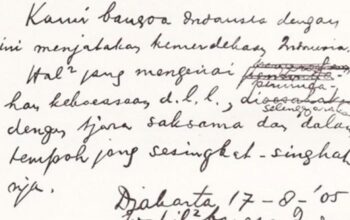 Kami bangsa Indonesia dengan
ini menjatakan kemerdekaan Indonesia.
Hal² jang mengenai
peminda-
han kekoeasaan d.l.l., dioesahakan
selenggarakan
dengan tjara saksama dan dalam
tempoh jang sesingkat-singkat
nja.
Djakarta 17 - 8 - '05